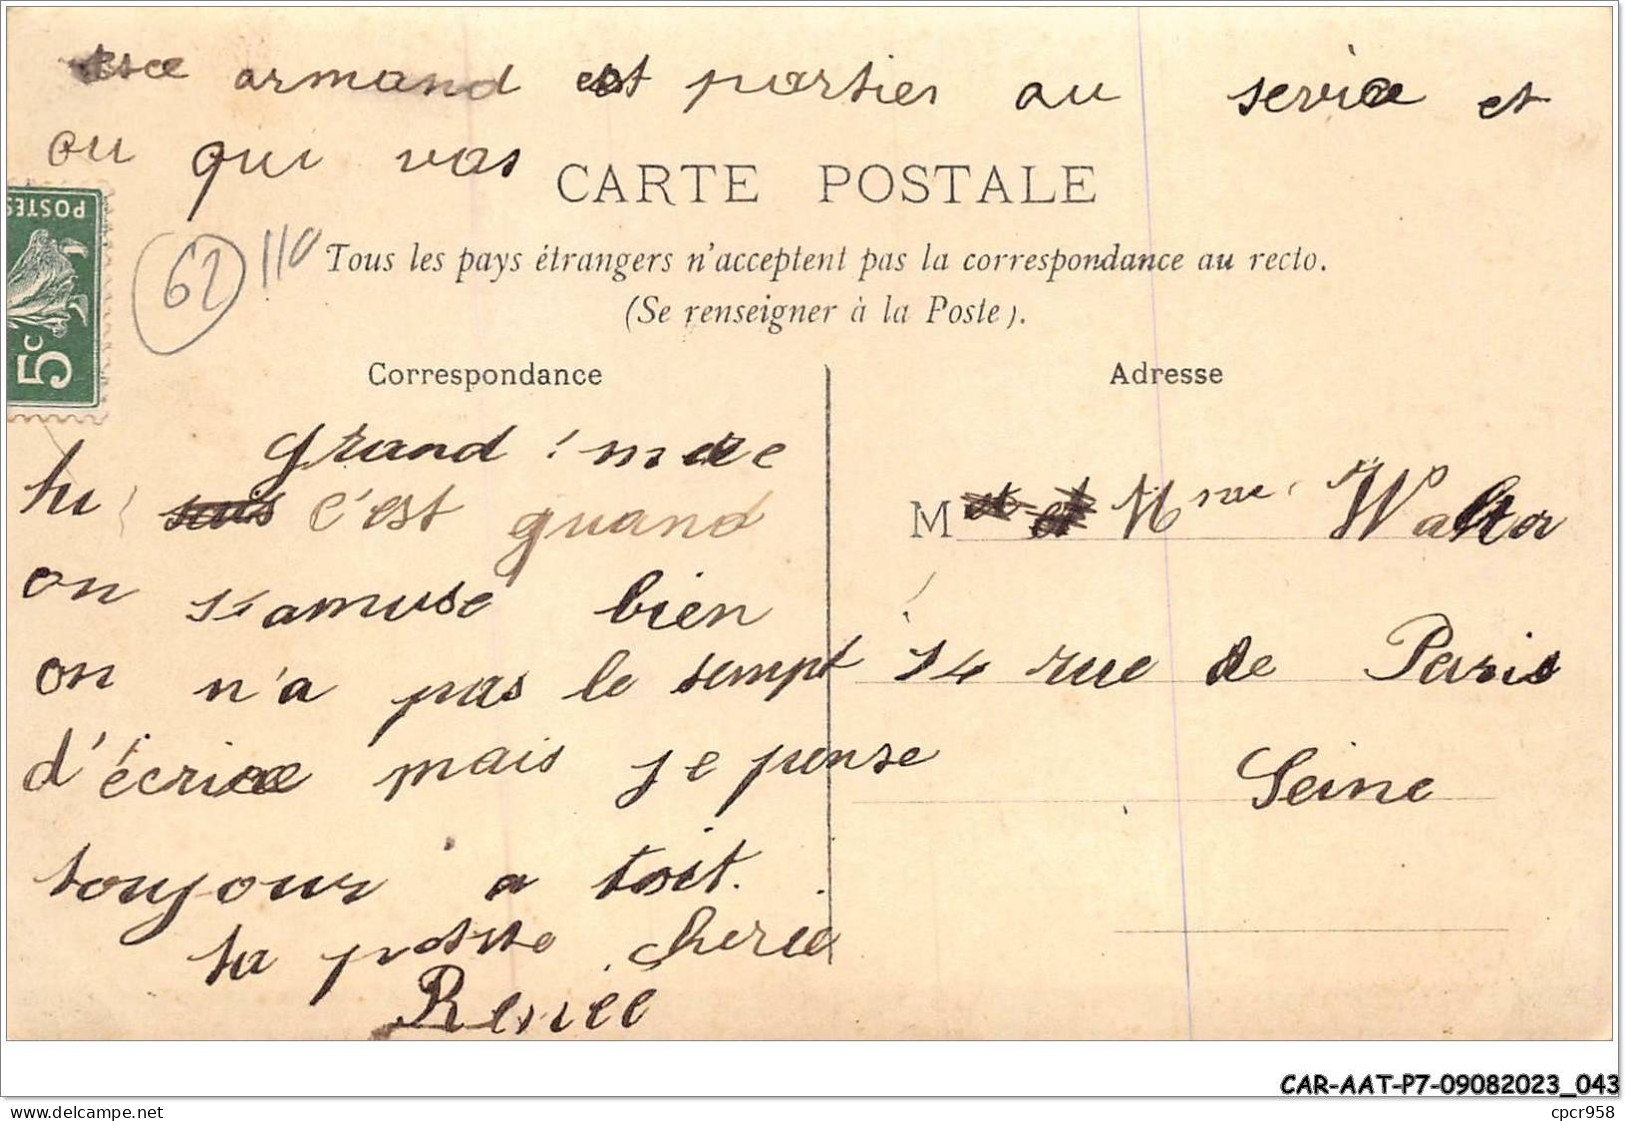 armand est partier au service et
ou qui vas
CARTE POSTALE
POSTES
5c
62 110
Tous les pays étrangers n'acceptent pas la correspondance au recto.
(Se renseigner à la Poste).
Correspondance
Adresse
grand mere
tu sais c'est quand
on s'amuse bien
on n'a pas le tempt
d'écrire mais je pense
toujour a toit.
ta petite cherie
Renée
M et et Mme Walter
14 rue de Paris
Seine
CAR-AAT-P7-09082023_043
https://www.delcampe.net
cpcr958